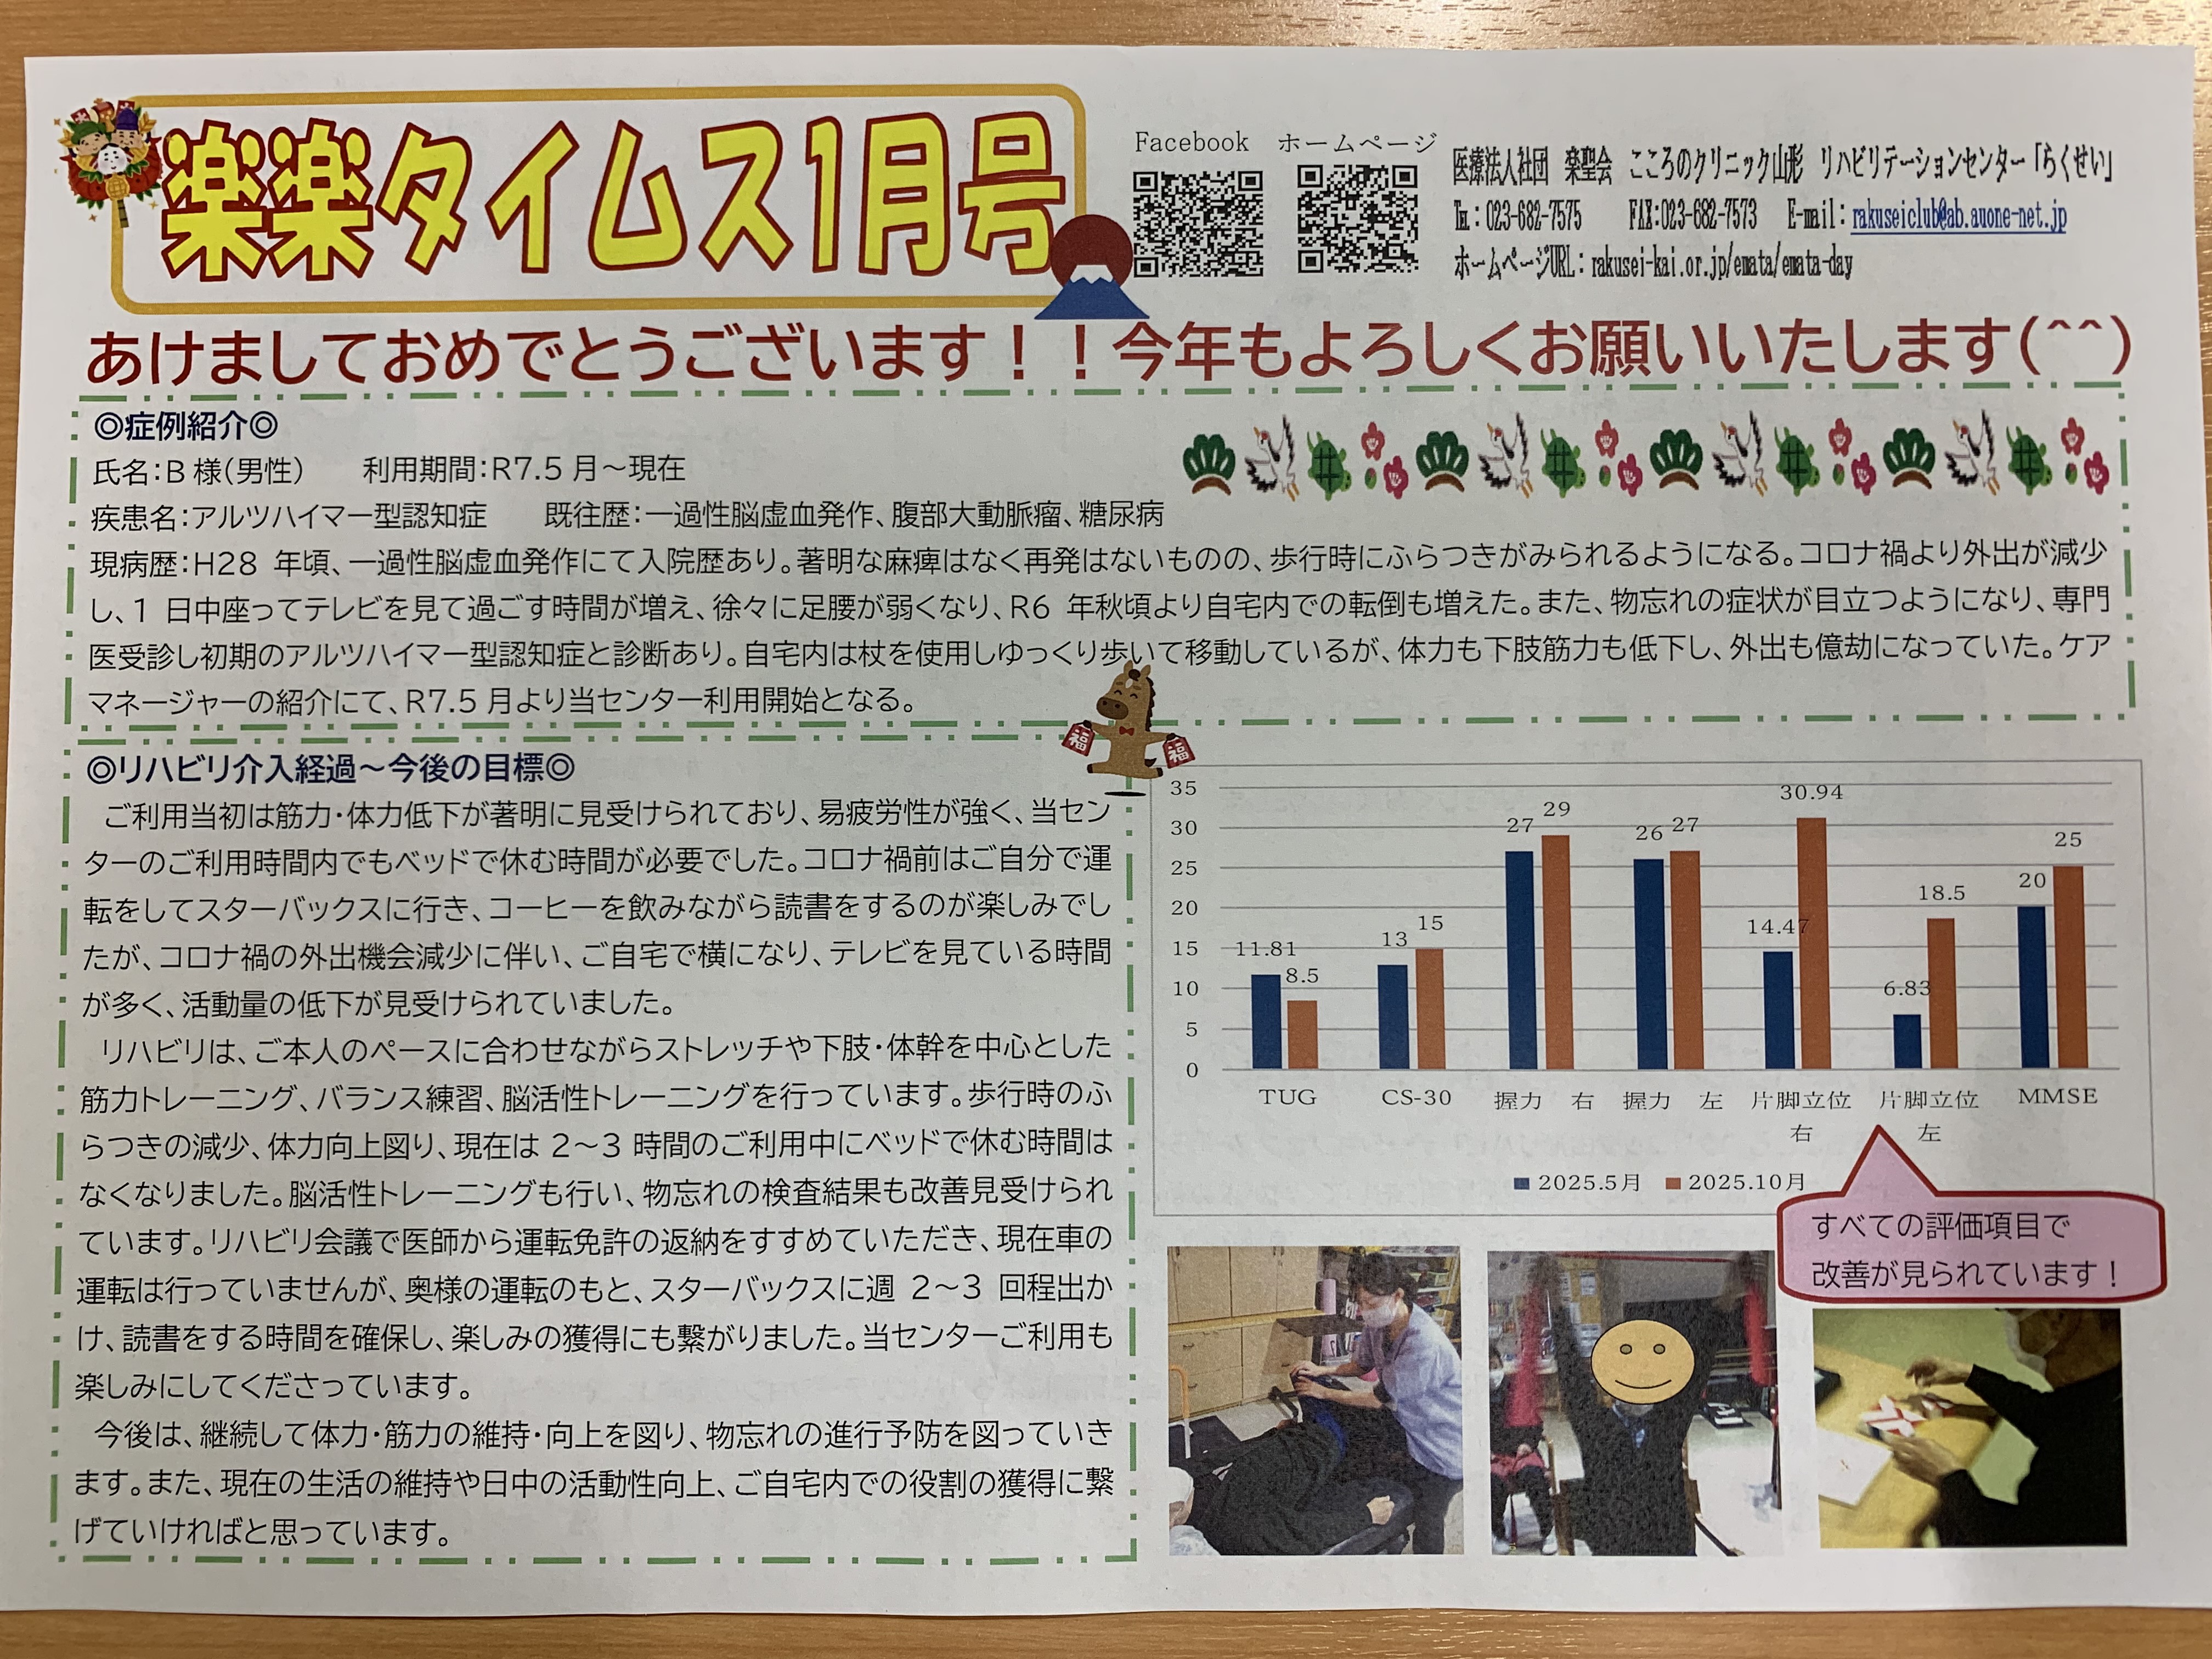 楽楽タイムス1月号
Facebook ホームページ
医療法人社団 楽聖会 こころのクリニック山形 リハビリテーションセンター「らくせい」
℡：023-682-7575 FAX:023-682-7573 E-mail：rakuseiclub@ab.auone-net.jp
ホームページURL：rakusei-kai.or.jp/emata/emata-day
あけましておめでとうございます！！今年もよろしくお願いいたします(^^)
◎症例紹介◎
氏名：B 様（男性） 利用期間：R7.5 月～現在
疾患名：アルツハイマー型認知症 既往歴：一過性脳虚血発作、腹部大動脈瘤、糖尿病
現病歴：H28 年頃、一過性脳虚血発作にて入院歴あり。著明な麻痺はなく再発はないものの、歩行時にふらつきがみられるようになる。コロナ禍より外出が減少
し、1 日中座ってテレビを見て過ごす時間が増え、徐々に足腰が弱くなり、R6 年秋頃より自宅内での転倒も増えた。また、物忘れの症状が目立つようになり、専門
医受診し初期のアルツハイマー型認知症と診断あり。自宅内は杖を使用しゆっくり歩いて移動しているが、体力も下肢筋力も低下し、外出も億劫になっていた。ケア
マネージャーの紹介にて、R7.5 月より当センター利用開始となる。
福 福
◎リハビリ介入経過～今後の目標◎
ご利用当初は筋力・体力低下が著明に見受けられており、易疲労性が強く、当セン
ターのご利用時間内でもベッドで休む時間が必要でした。コロナ禍前はご自分で運
転をしてスターバックスに行き、コーヒーを飲みながら読書をするのが楽しみでし
たが、コロナ禍の外出機会減少に伴い、ご自宅で横になり、テレビを見ている時間
が多く、活動量の低下が見受けられていました。
リハビリは、ご本人のペースに合わせながらストレッチや下肢・体幹を中心とした
筋力トレーニング、バランス練習、脳活性トレーニングを行っています。歩行時のふ
らつきの減少、体力向上図り、現在は 2～3 時間のご利用中にベッドで休む時間は
なくなりました。脳活性トレーニングも行い、物忘れの検査結果も改善見受けられ
ています。リハビリ会議で医師から運転免許の返納をすすめていただき、現在車の
運転は行っていませんが、奥様の運転のもと、スターバックスに週 2～3 回程出か
け、読書をする時間を確保し、楽しみの獲得にも繋がりました。当センターご利用も
楽しみにしてくださっています。
今後は、継続して体力・筋力の維持・向上を図り、物忘れの進行予防を図っていき
ます。また、現在の生活の維持や日中の活動性向上、ご自宅内での役割の獲得に繋
げていければと思っています。
35
30
25
20
15
10
5
0
11.81 8.5
13 15
27 29
26 27
14.47 30.94
6.83 18.5
20 25
TUG CS-30 握力 右 握力 左 片脚立位 片脚立位 MMSE
右 左
2025.5月 2025.10月
すべての評価項目で
改善が見られています！